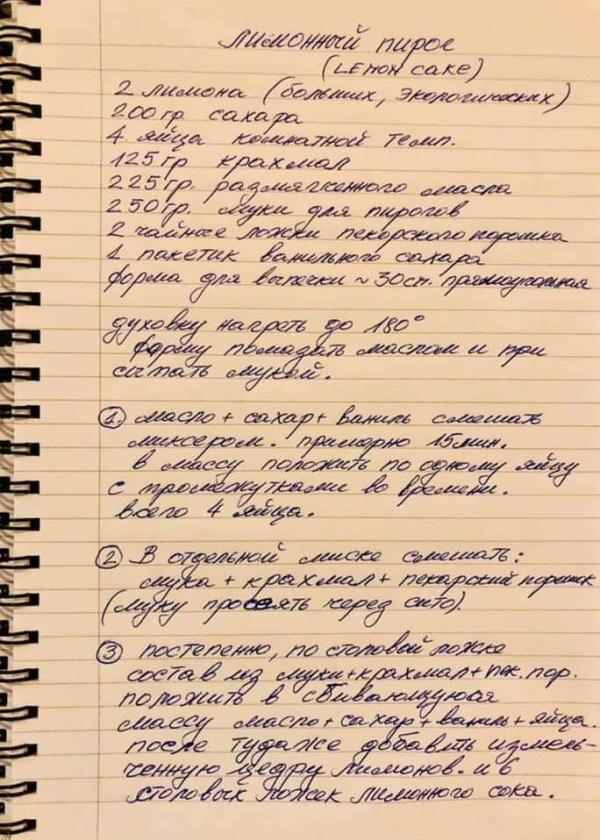 Лимонный пирог
(LEMON CAKE)
2 лимона (больших, экологических)
200гр сахара
4 яйца комнатной темп.
125гр крахмал
225гр. размягченного масла
250гр. муки для пирогов
2 чайные ложки пекорского порошка
1 пакетик ванильного сахара
форма для выпечки ~ 30см. прямоугольная
духовку нагреть до 180°
форму помазать маслом и при
сыпать мукой.
1. масло + сахар + ваниль смешать
миксером. примерно 15мин.
в массу положить по одному яйцу
с промежутками во времени.
всего 4 яйца.
2 В отдельной миске смешать:
мука + крахмал + пекарский порошок
(муку просеять через сито).
3 постепенно, по столовой ложке
состав из муки+крахмал+пек. пор.
положить в сбивающуюя
массу масло+сахар+ваниль+яйца.
после тудаже добавить измель-
ченную цедру лимонов. и 6
столовых ложек лимонного сока.